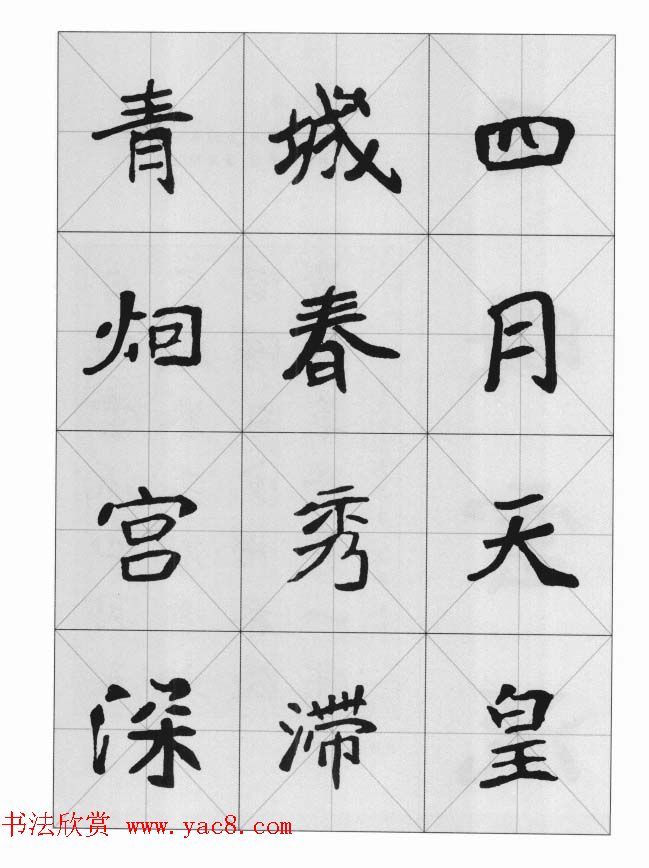 四月天皇
城春秀滞
青炯宫深
书法欣赏 www.yac8.com